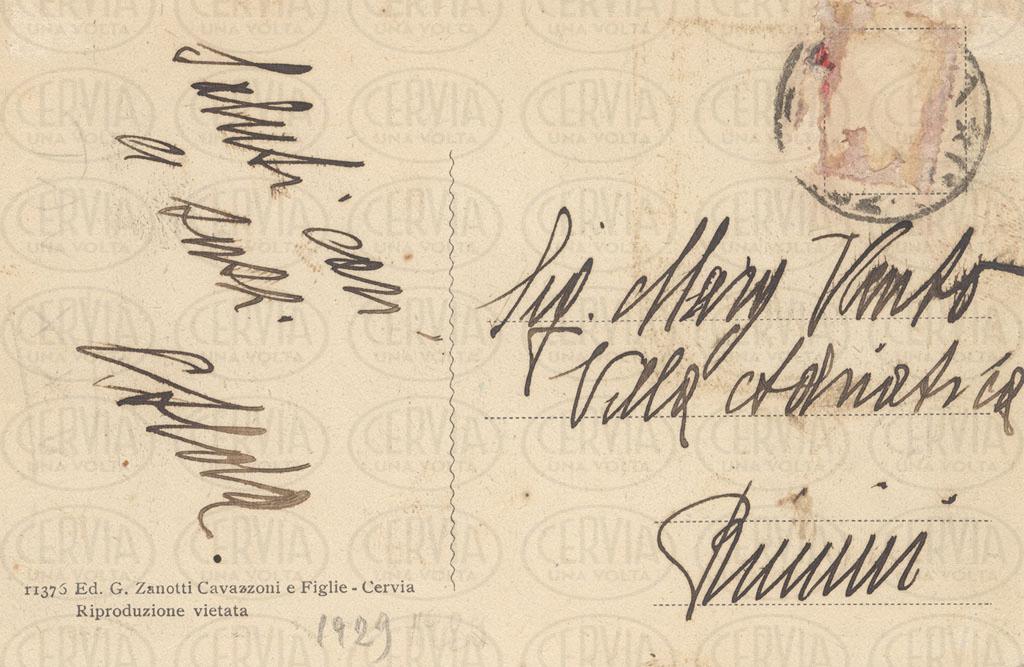 Saluti cari
e
Sig. Mary Vento
Villa Adriatica
Rimini
11376 Ed. G. Zanotti Cavazzoni e Figlie - Cervia
Riproduzione vietata
1929
CERVIA
UNA VOLTA